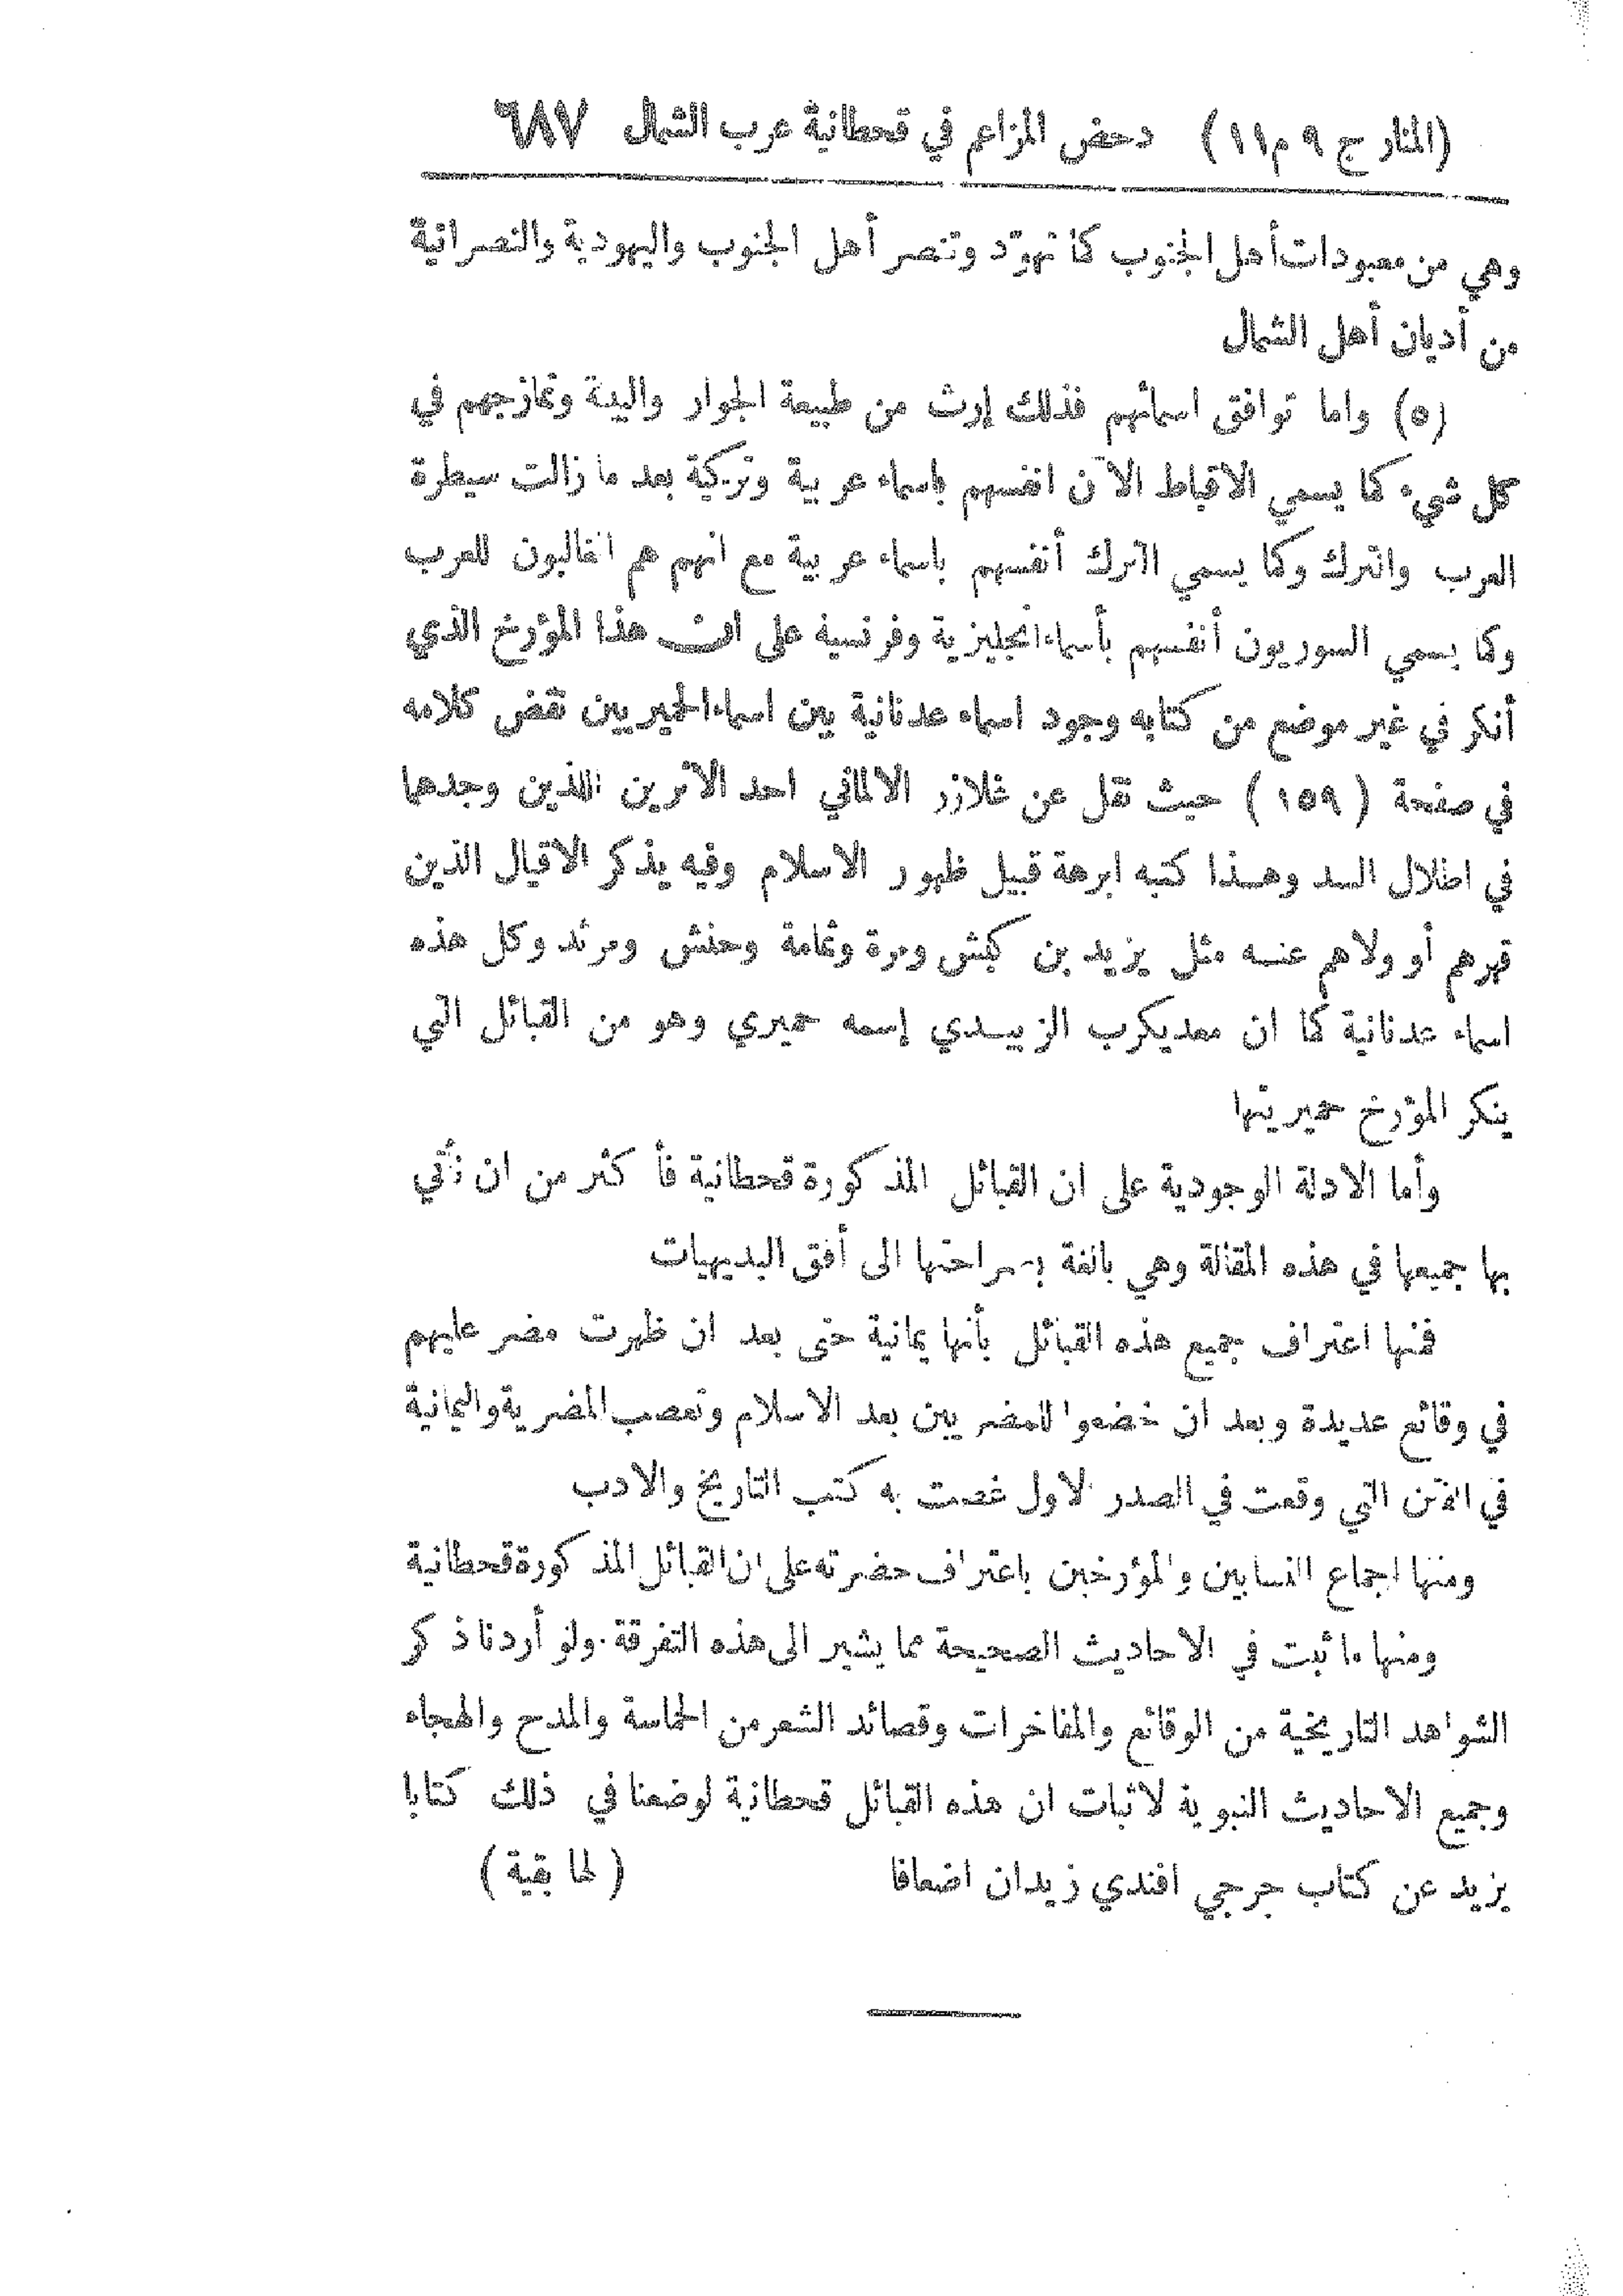 (المنار ج ٩ م ١١) دحض المزاعم في قحطانية عرب الشمال ٦٨٧
وهي من معبودات أهل الجنوب كما تهوّد وتنصر أهل الجنوب واليهودية والنصرانية
من أديان أهل الشمال
(٥) واما توافق اسمائهم فذلك إرث من طبيعة الجوار والبيئة وتمازجهم في
كل شيء كما يسمي الاقباط الآن انفسهم باسماء عربية وتركية بعد ما زالت سيطرة
العرب والترك وكما يسمي الترك أنفسهم باسماء عربية مع انهم هم الغالبون للعرب
وكما يسمي السوريون أنفسهم بأسماء انجليزية وفرنسية على ان هذا المؤرخ الذي
أنكر في غير موضع من كتابه وجود اسماء عدنانية بين اسماء الحميريين نقض كلامه
في صفحة (١٥٩) حيث نقل عن غلازر الالماني احد الاثرين اللذين وجدهما
في اطلال السد وهذا كتبه ابرهة قبيل ظهور الاسلام وفيه يذكر الاقيال الذين
قهرهم أو ولاهم عنه مثل يزيد بن كبش ومرة وثمامة وحنش ومرثد وكل هذه
اسماء عدنانية كما ان معديكرب الزبيدي إسمه حميري وهو من القبائل التي
ينكر المؤرخ حميريتها
وأما الادلة الوجودية على ان القبائل المذكورة قحطانية فأكثر من ان نأتي
بها جميعها في هذه المقالة وهي بالغة بصراحتها الى أفق البديهيات
فمنها اعتراف جميع هذه القبائل بأنها يمانية حتى بعد ان ظهرت مضر عليهم
في وقائع عديدة وبعد ان خضعوا للمضريين بعد الاسلام وتعصب المضرية واليمانية
في الفتن التي وقعت في الصدر الاول غصت به كتب التاريخ والادب
ومنها اجماع النسابين والمؤرخين باعتراف حضرته على ان القبائل المذكورة قحطانية
ومنها ما ثبت في الاحاديث الصحيحة مما يشير الى هذه التفرقة. ولو أردنا ذكر
الشواهد التاريخية من الوقائع والمفاخرات وقصائد الشعر من الحماسة والمدح والهجاء
وجميع الاحاديث النبوية لاثبات ان هذه القبائل قحطانية لوضعنا في ذلك كتابا
يزيد عن كتاب جرجي افندي زيدان اضعافا (لها بقية)